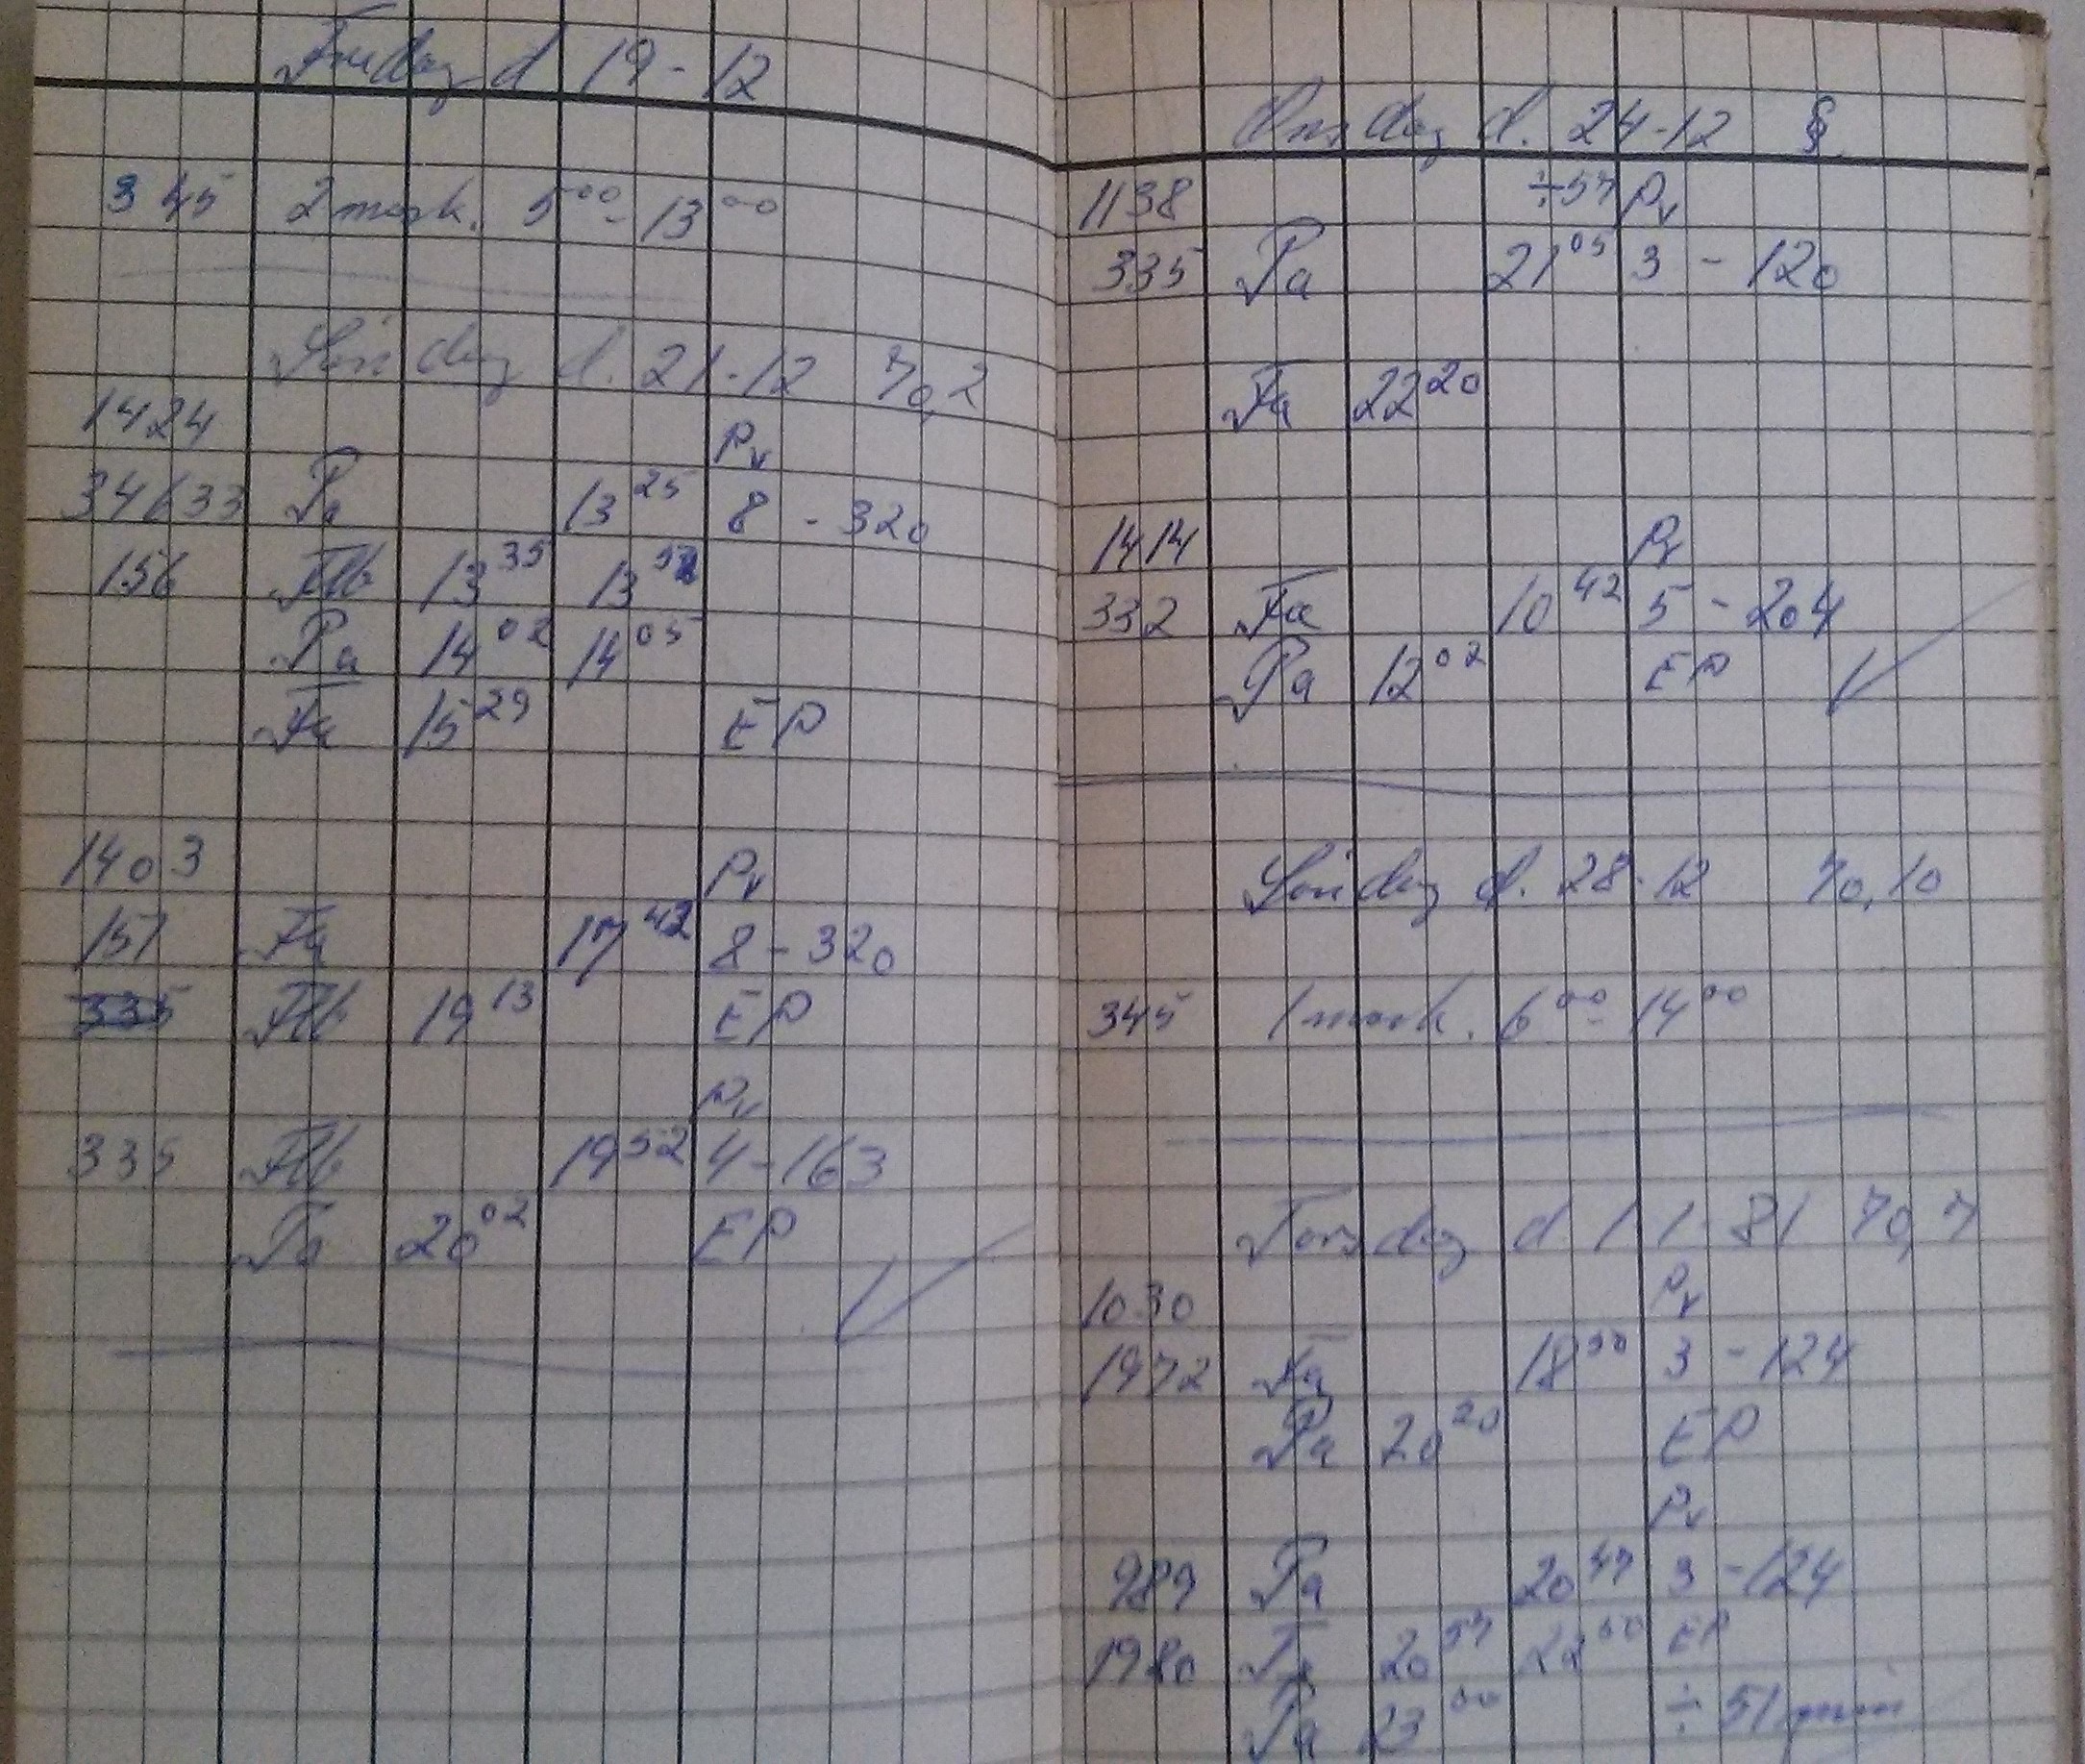 Fredag d 19-12
345 2 mask. 5⁰⁰ - 13⁰⁰
Søndag d. 21-12 70,2
1424
Pv
34633 Pa 13²⁵ 8 - 320
156 Flb 13³⁵
Pa 14⁰² 14⁰⁵
Fa 15²⁹ EP
1403 Pv
157 Fa 17⁴² 8 - 320
335 Flb 19¹³ EP
Pv
335 Flb 19⁵² 4 - 163
20⁰² EP
Onsdag d. 24-12 §
1138 ÷57 Pv
335 Pa 21⁰⁵ 3 - 120
Fa 22²⁰
1414 Pv
332 Fa 10⁴² 5 - 204
Pa 12⁰² EP
Søndag d. 28-12 70,10
345 1 mask. 6⁰⁰ - 14⁰⁰
Torsdag d 1 1 81 70,7
1030 Pv
1972 Fa 18⁵⁰ 3 - 124
Pa 20²⁰ EP
Pv
989 Pa 20⁴⁷ 3 - 124
1980 20⁵⁷ 22⁵⁰ EP
Pa 23⁰⁰ ÷ 51 min